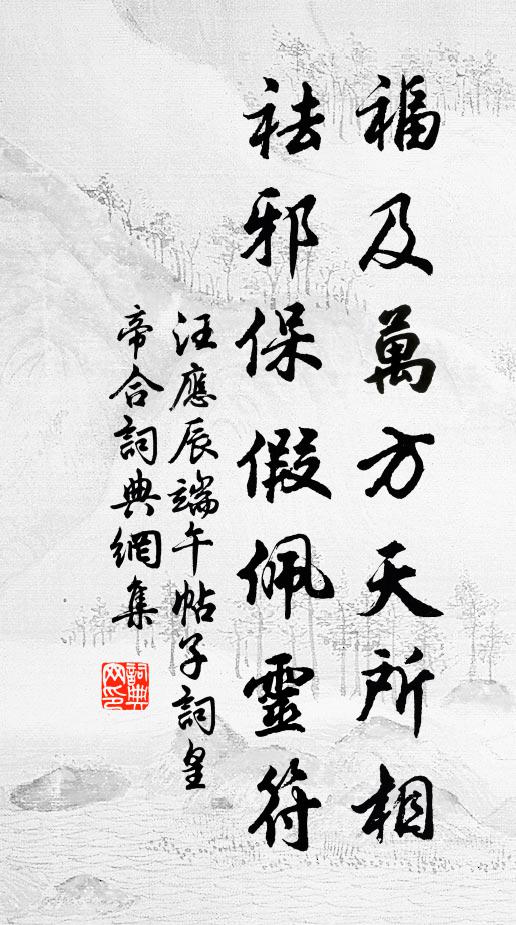 福及萬方天所相
祛邪保假佩靈符
汪應辰端午帖子詞皇
帝合詞典網集
詞典網印